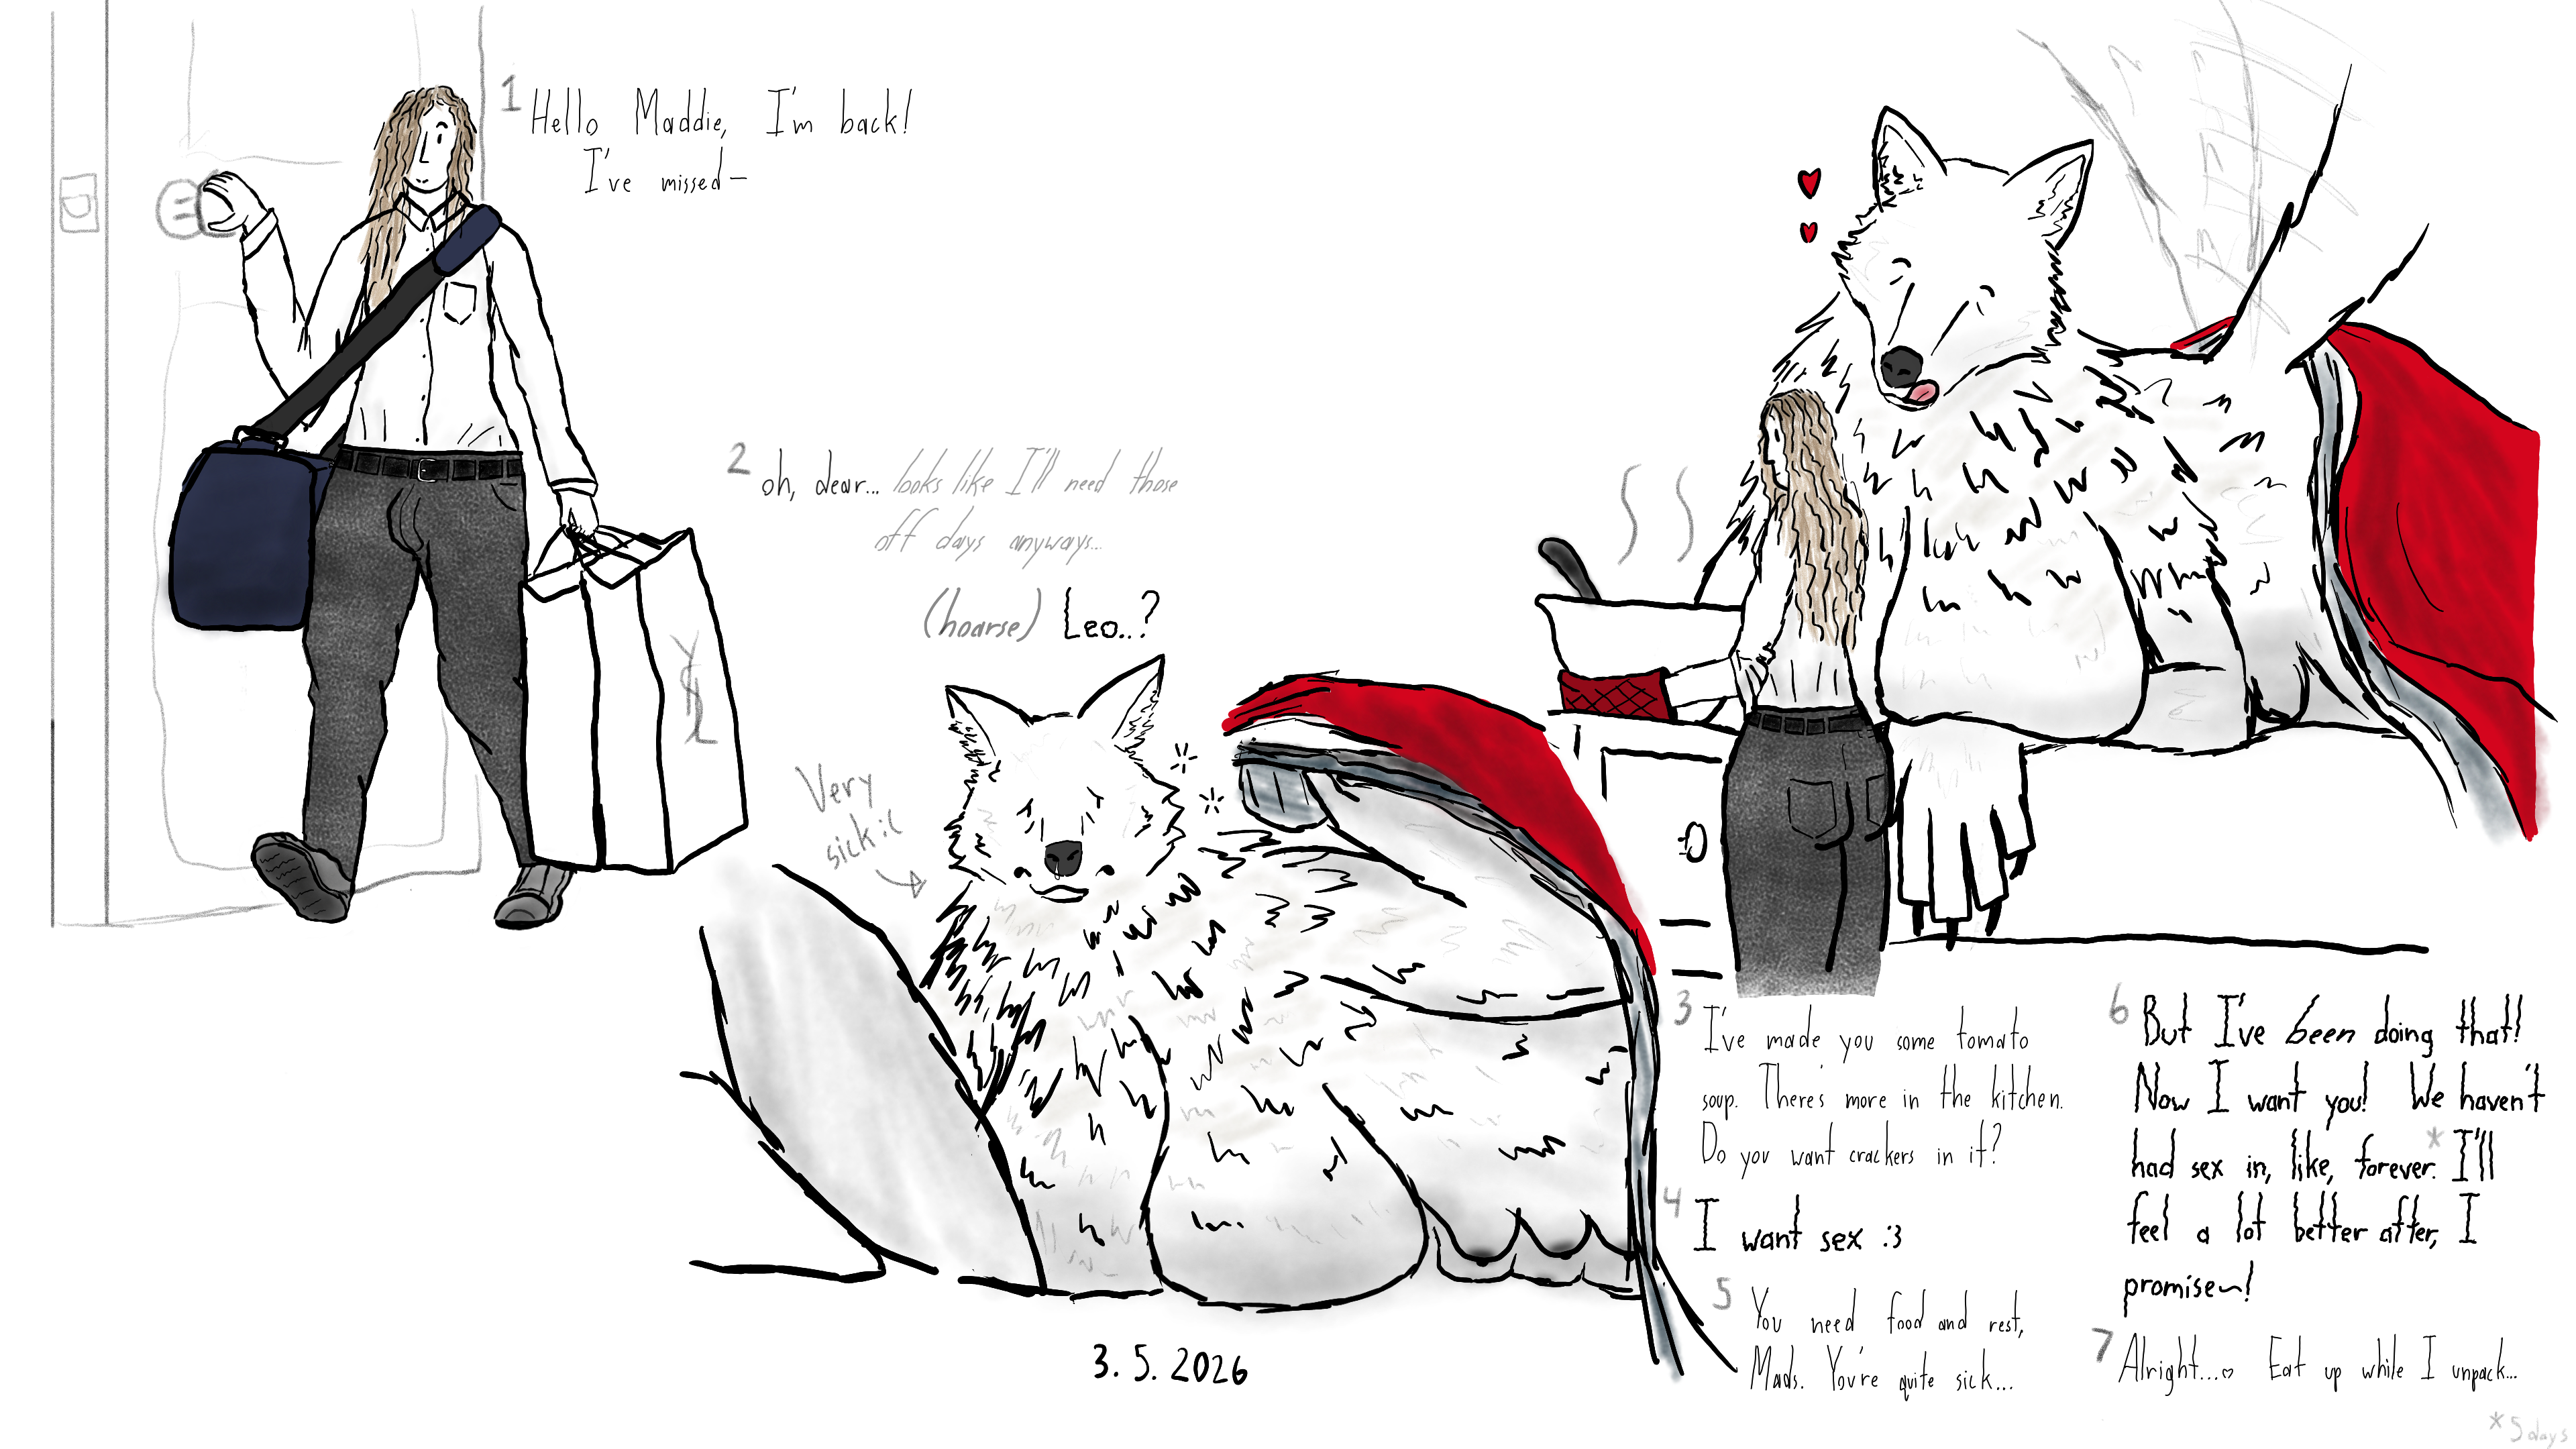 1 Hello Maddie, I'm back!
I've missed—
2 oh, dear... looks like I'll need those
off days anyways...
(hoarse) Leo..?
YSL
Very
sick :(
3 I've made you some tomato
soup. There's more in the kitchen.
Do you want crackers in it?
4 I want sex :3
5 You need food and rest,
Mads. You're quite sick...
6 But I've been doing that!
Now I want you! We haven't
had sex in, like, forever.* I'll
feel a lot better after, I
promise~!
7 Alright...♡ Eat up while I unpack...
*5 days
3.5.2026